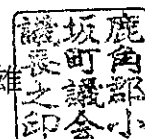 鹿角郡小
坂町議会
議長之印
雄